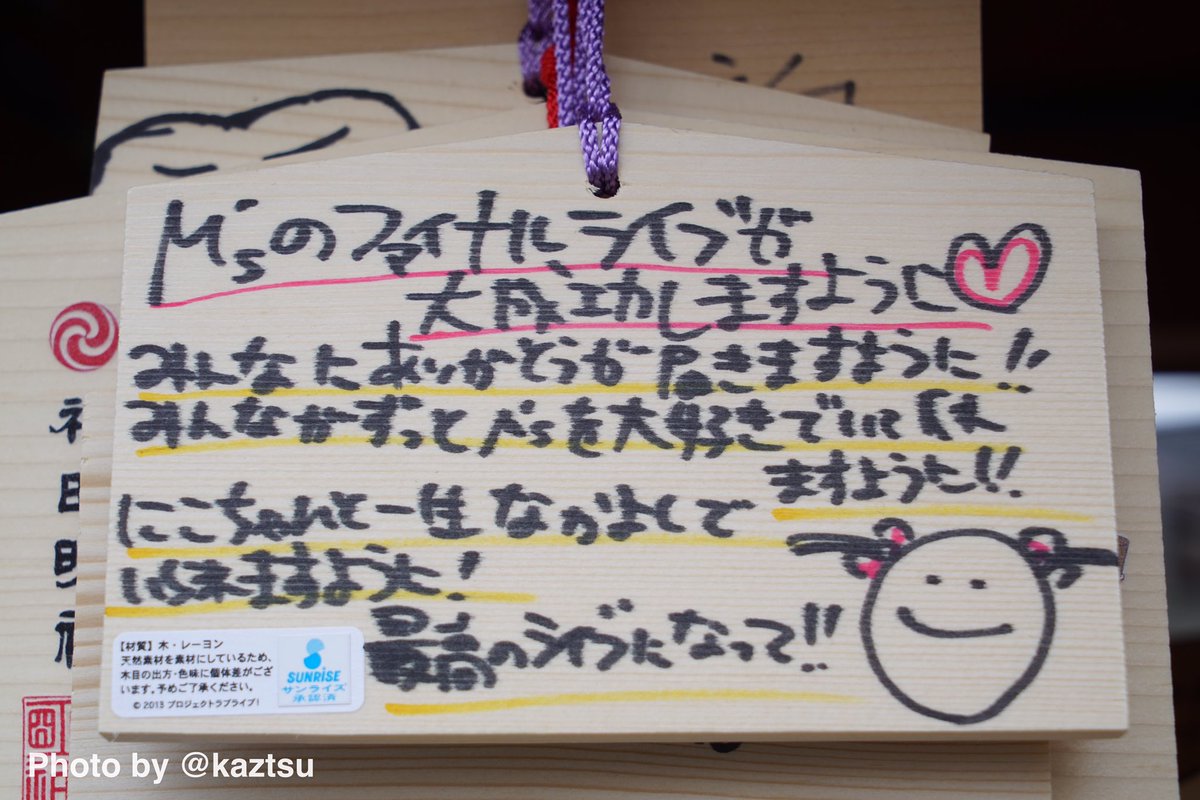 μ'sのファイナルライブが
大成功しますように
みんなにありがとうが届きますように!!
みんながずっとμ'sを大好きでいてくれ
ますように!!
にこちゃんと一生なかよしで
いれますように!
最高のライブになって!!
【材質】木・レーヨン
天然素材を素材にしているため、
木目の出方・色味に個体差がござ
います。予めご了承ください。
© 2013 プロジェクトラブライブ!
SUNRISE
サンライズ
承認済
田明神
Photo by @kaztsu